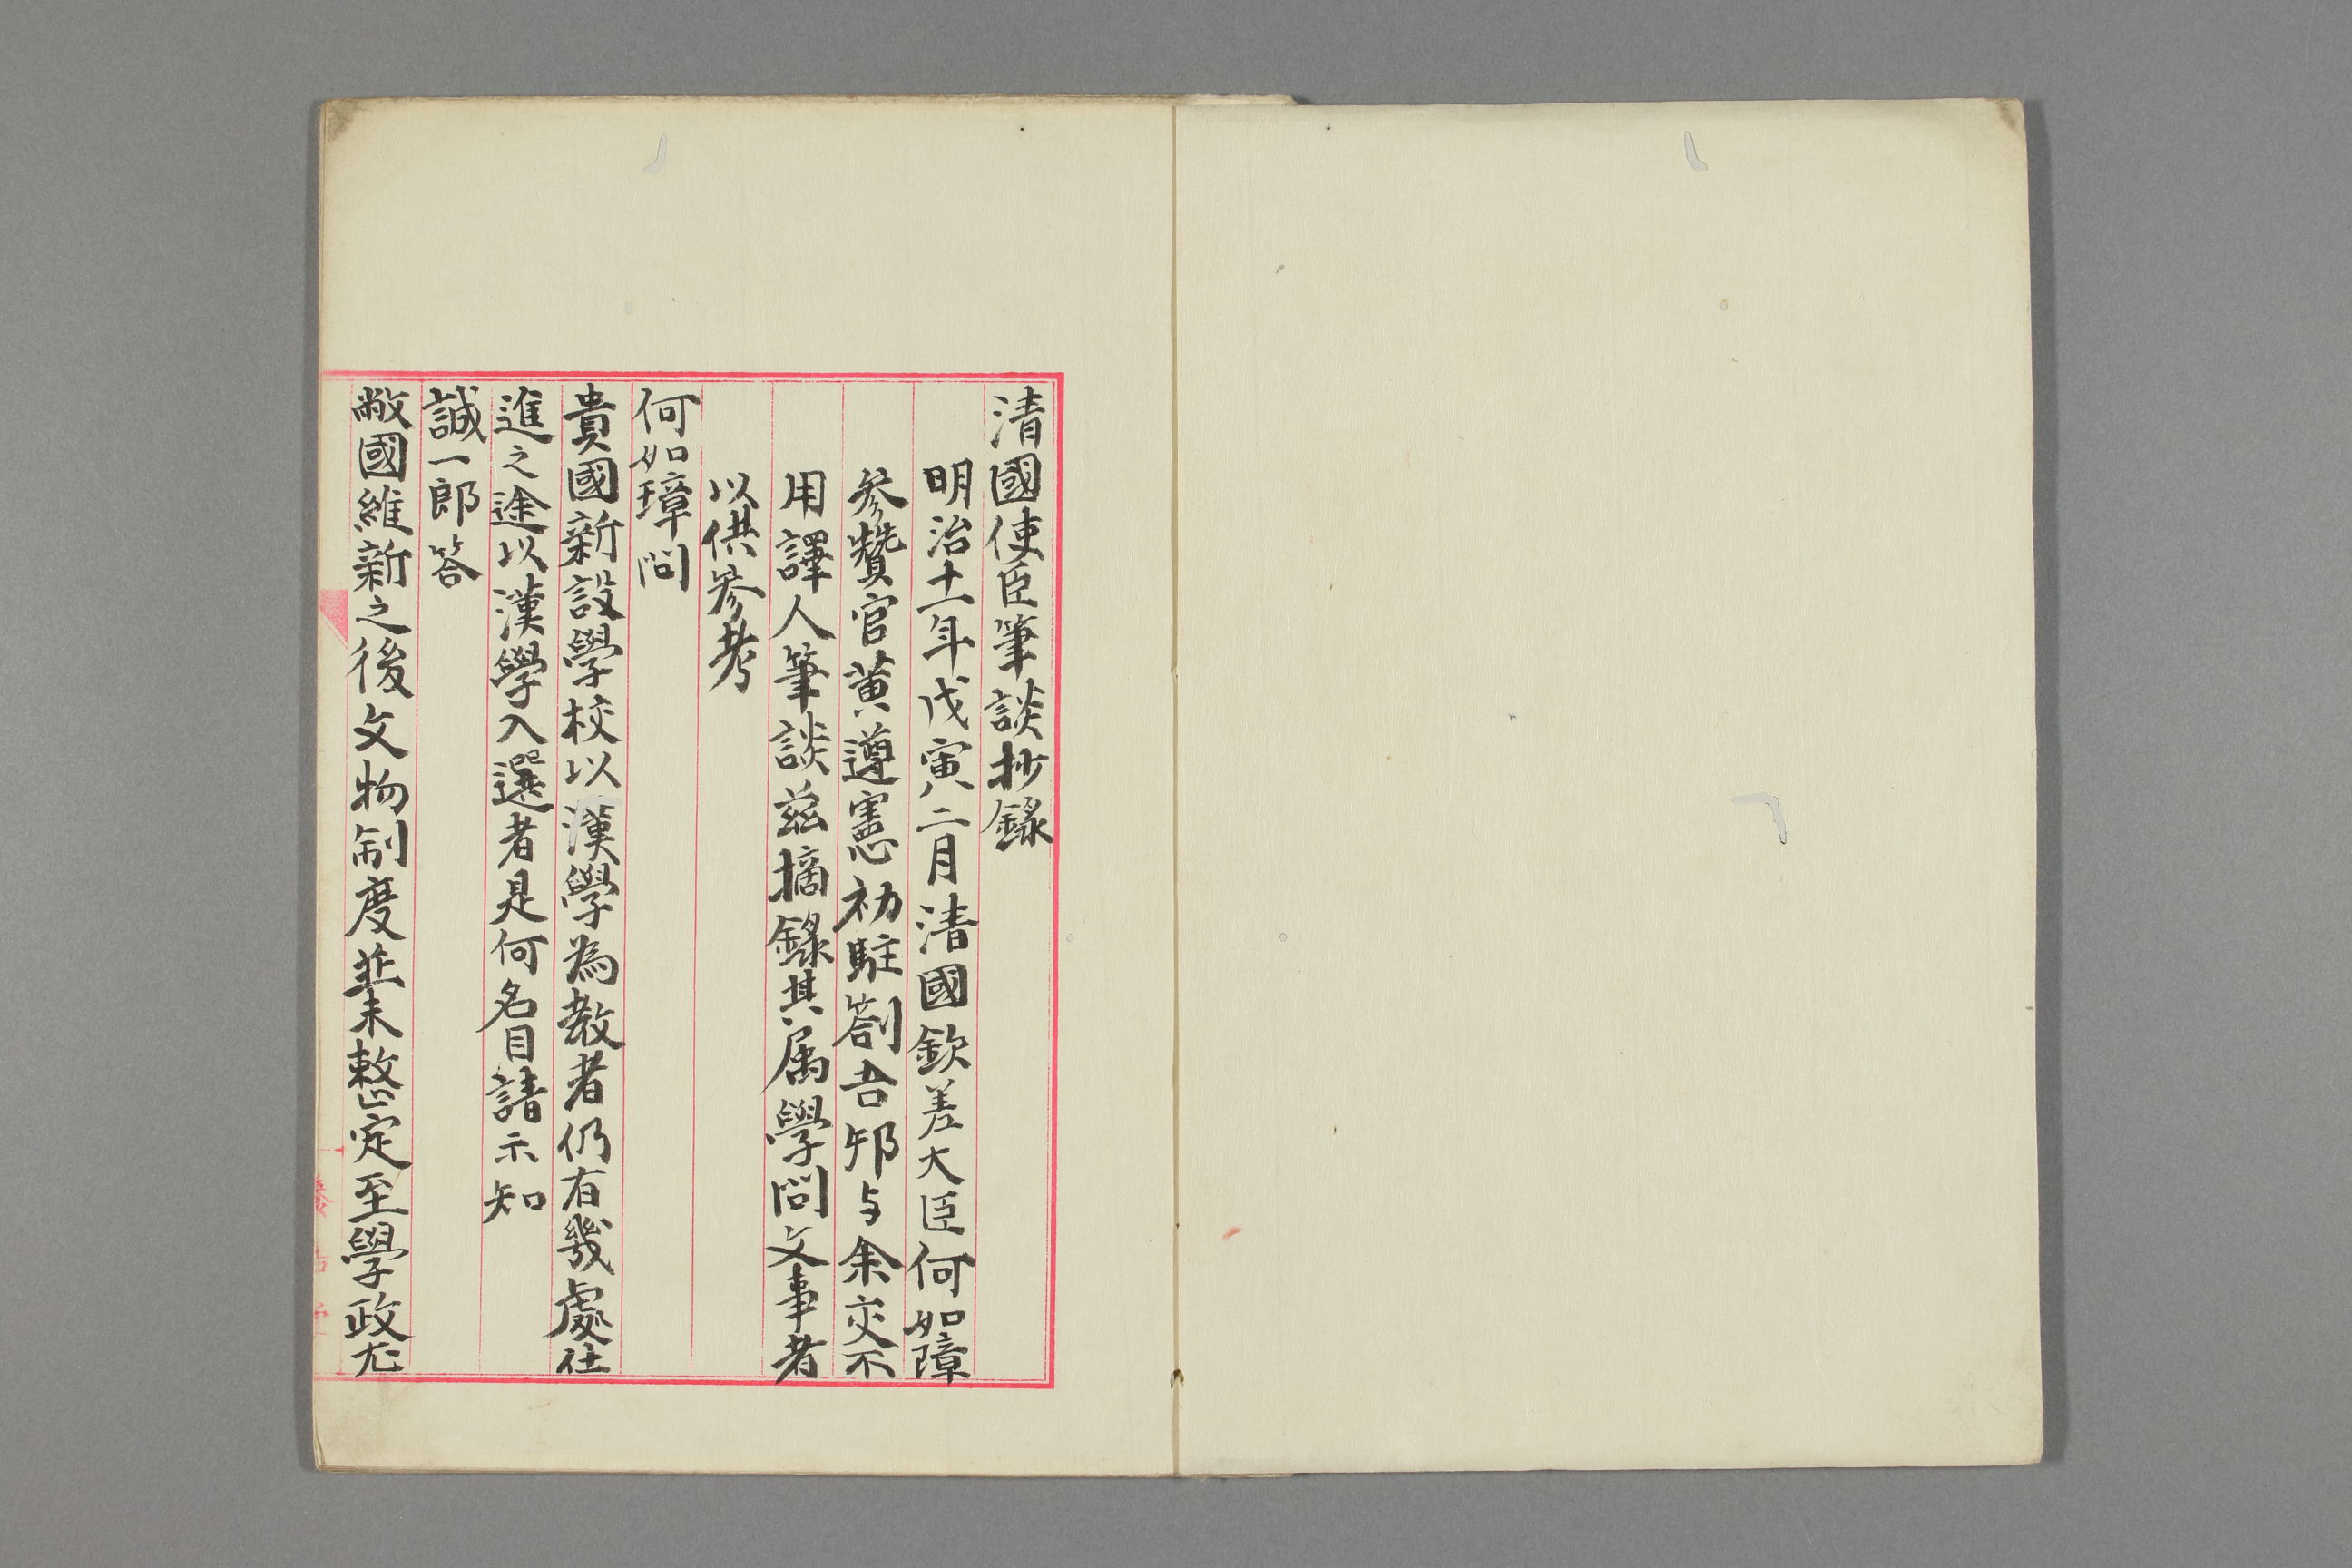 清國使臣筆談抄錄
明治十一年戊寅二月清國欽差大臣何如障
參贊官黄遵憲初駐劄吾邦与余交不
用譯人筆談茲摘錄其属學問文事者
以供參考
何如璋問
貴國新設學校以漢學為教者仍有幾處仕
進之途以漢學入選者是何名目請示知
誠一郎答
敝國維新之後文物制度並未整定至學政尤